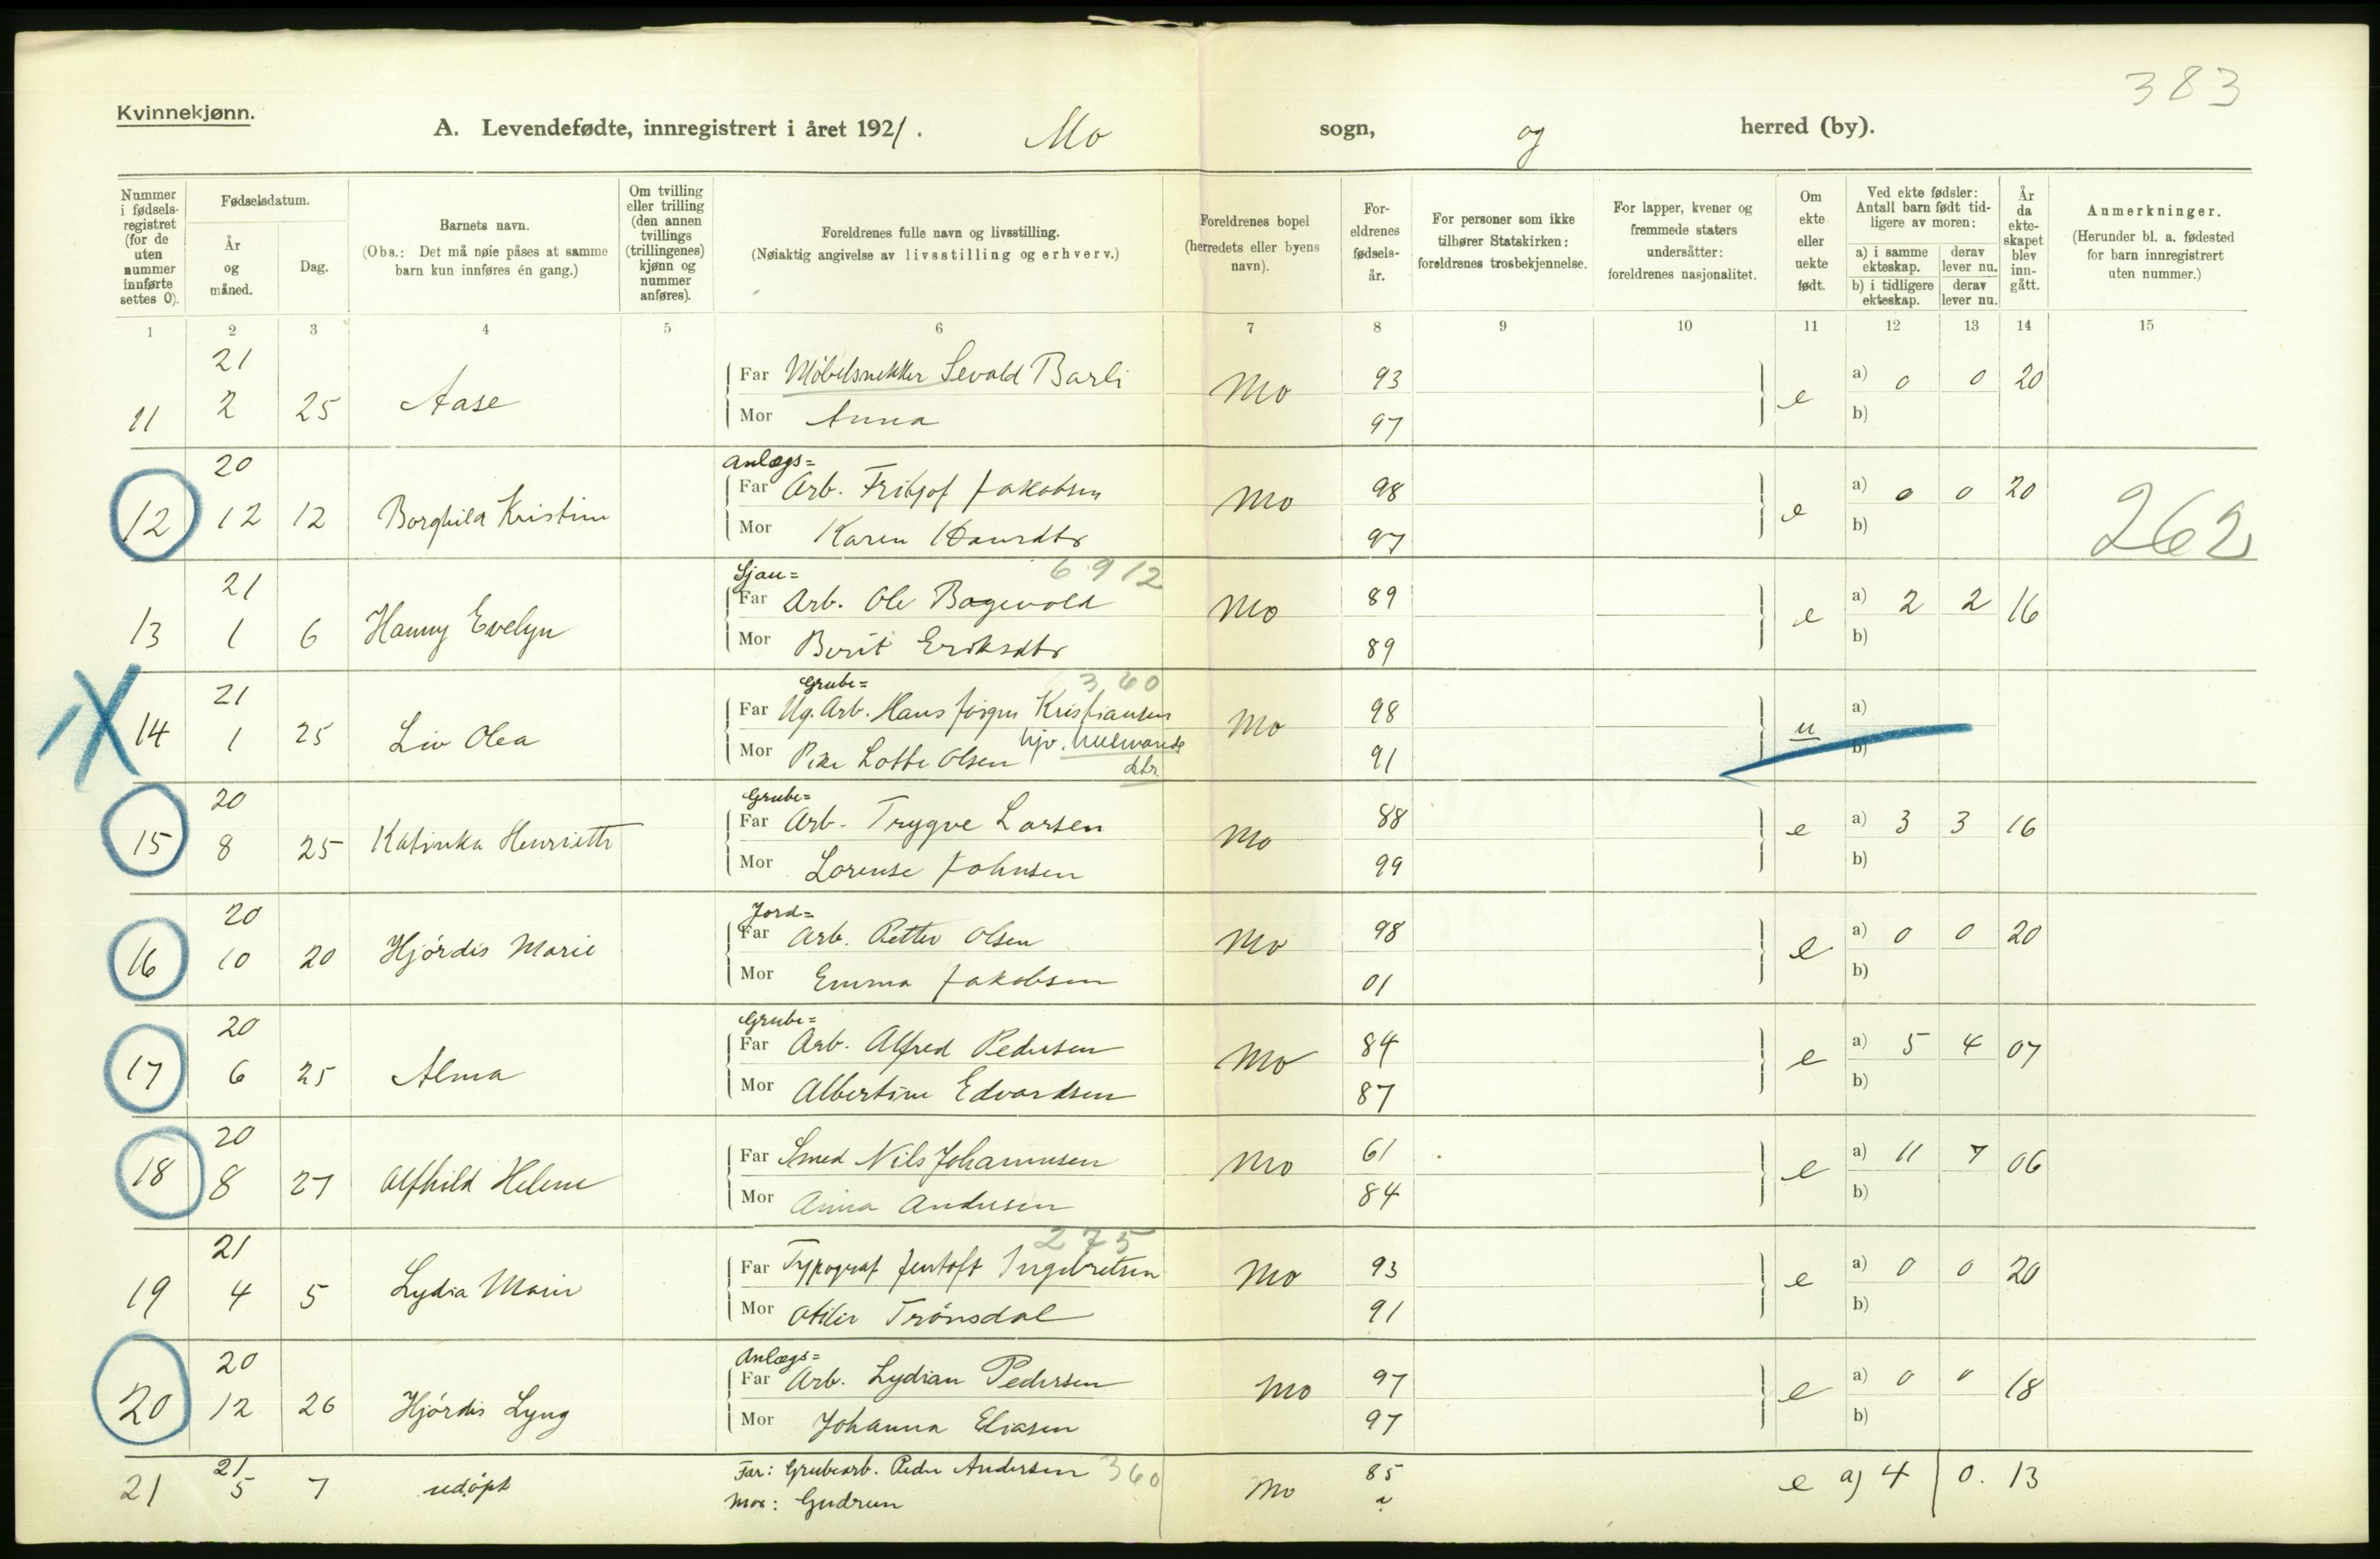 383
Kvinnekjønn.
A. Levendefødte, innregistrert i året 1921. Mo sogn, og herred (by).
Nummer i fødsels-registret (for de uten nummer innførte settes 0).
Fødselsdatum.
År og måned.
Dag.
Barnets navn.
(Obs.: Det må nøie påses at samme barn kun innføres én gang.)
Om tvilling eller trilling (den annen tvillings (trillingenes) kjønn og nummer anføres).
Foreldrenes fulle navn og livsstilling.
(Nøiaktig angivelse av livsstilling og erhverv.)
Foreldrenes bopel (herredets eller byens navn).
For-eldrenes fødsels-år.
For personer som ikke tilhører Statskirken: foreldrenes trosbekjennelse.
For lapper, kvener og fremmede staters undersåtter: foreldrenes nasjonalitet.
Om ekte eller uekte født.
Ved ekte fødsler: Antall barn født tid-ligere av moren:
a) i samme ekteskap.
derav lever nu.
b) i tidligere ekteskap.
derav lever nu.
År da ekte-skapet blev inn-gått.
Anmerkninger.
(Herunder bl. a. fødested for barn innregistrert uten nummer.)
1 2 3 4 5 6 7 8 9 10 11 12 13 14 15
21
Far Møbelsnekker Sevald Barli 93 a) 0 0 20
11 2 25 Aase Mo e
Mor Anna 97 b)
20 Anlægs=
Far Arb. Fritjof Jakobsen 98 a) 0 0 20
12 12 12 Borghild Kristine Mo e 262
Mor Karen 97 b)
21 Sjau= 6912
Far Arb. Ole Bogevold 89 a) 2 2 16
13 1 6 Hanny Evelyn Mo e
Mor Berit Eriksdtr 89 b)
21 Grube= 360
Far Ug. Arb. Hans Jørgen Kristiansen 98 a)
14 1 25 Liv Olea Mo u
Mor Pike Lotte Olsen hjv. 91 b)
dtr.
20 Grube=
Far Arb. Trygve Larsen 88 a) 3 3 16
15 8 25 Katinka Henriette Mo e
Mor Lorense Johnsen 99 b)
20 Jord=
Far Arb. Petter Olsen 98 a) 0 0 20
16 10 20 Hjórdis Marie Mo e
Mor Emma Jakobsen 01 b)
20 Grube=
Far Arb. Alfred Pedersen 84 a) 5 4 07
17 6 25 Alma Mo e
Mor Albertine Edvardsen 87 b)
20
Far Smed Nils Johannesen 61 a) 11 7 06
18 8 27 Alfhild Helene Mo e
Mor Anna Andersen 84 b)
21 275
Far Typograf Jentoft Ingebretsen 93 a) 0 0 20
19 4 5 Lydia Marie Mo e
Mor Otilie Trónsdal 91 b)
20 Anlægs=
Far Arb. Lydian Pedersen 97 a) 0 0 18
20 12 26 Hjórdis Lyng Mo e
Mor Johanna Eliasen 97 b)
21 Far: Grubearb. Peder Andersen 360 85
21 5 7 udópt Mo e a) 4 0. 13
Mor: Gudrun